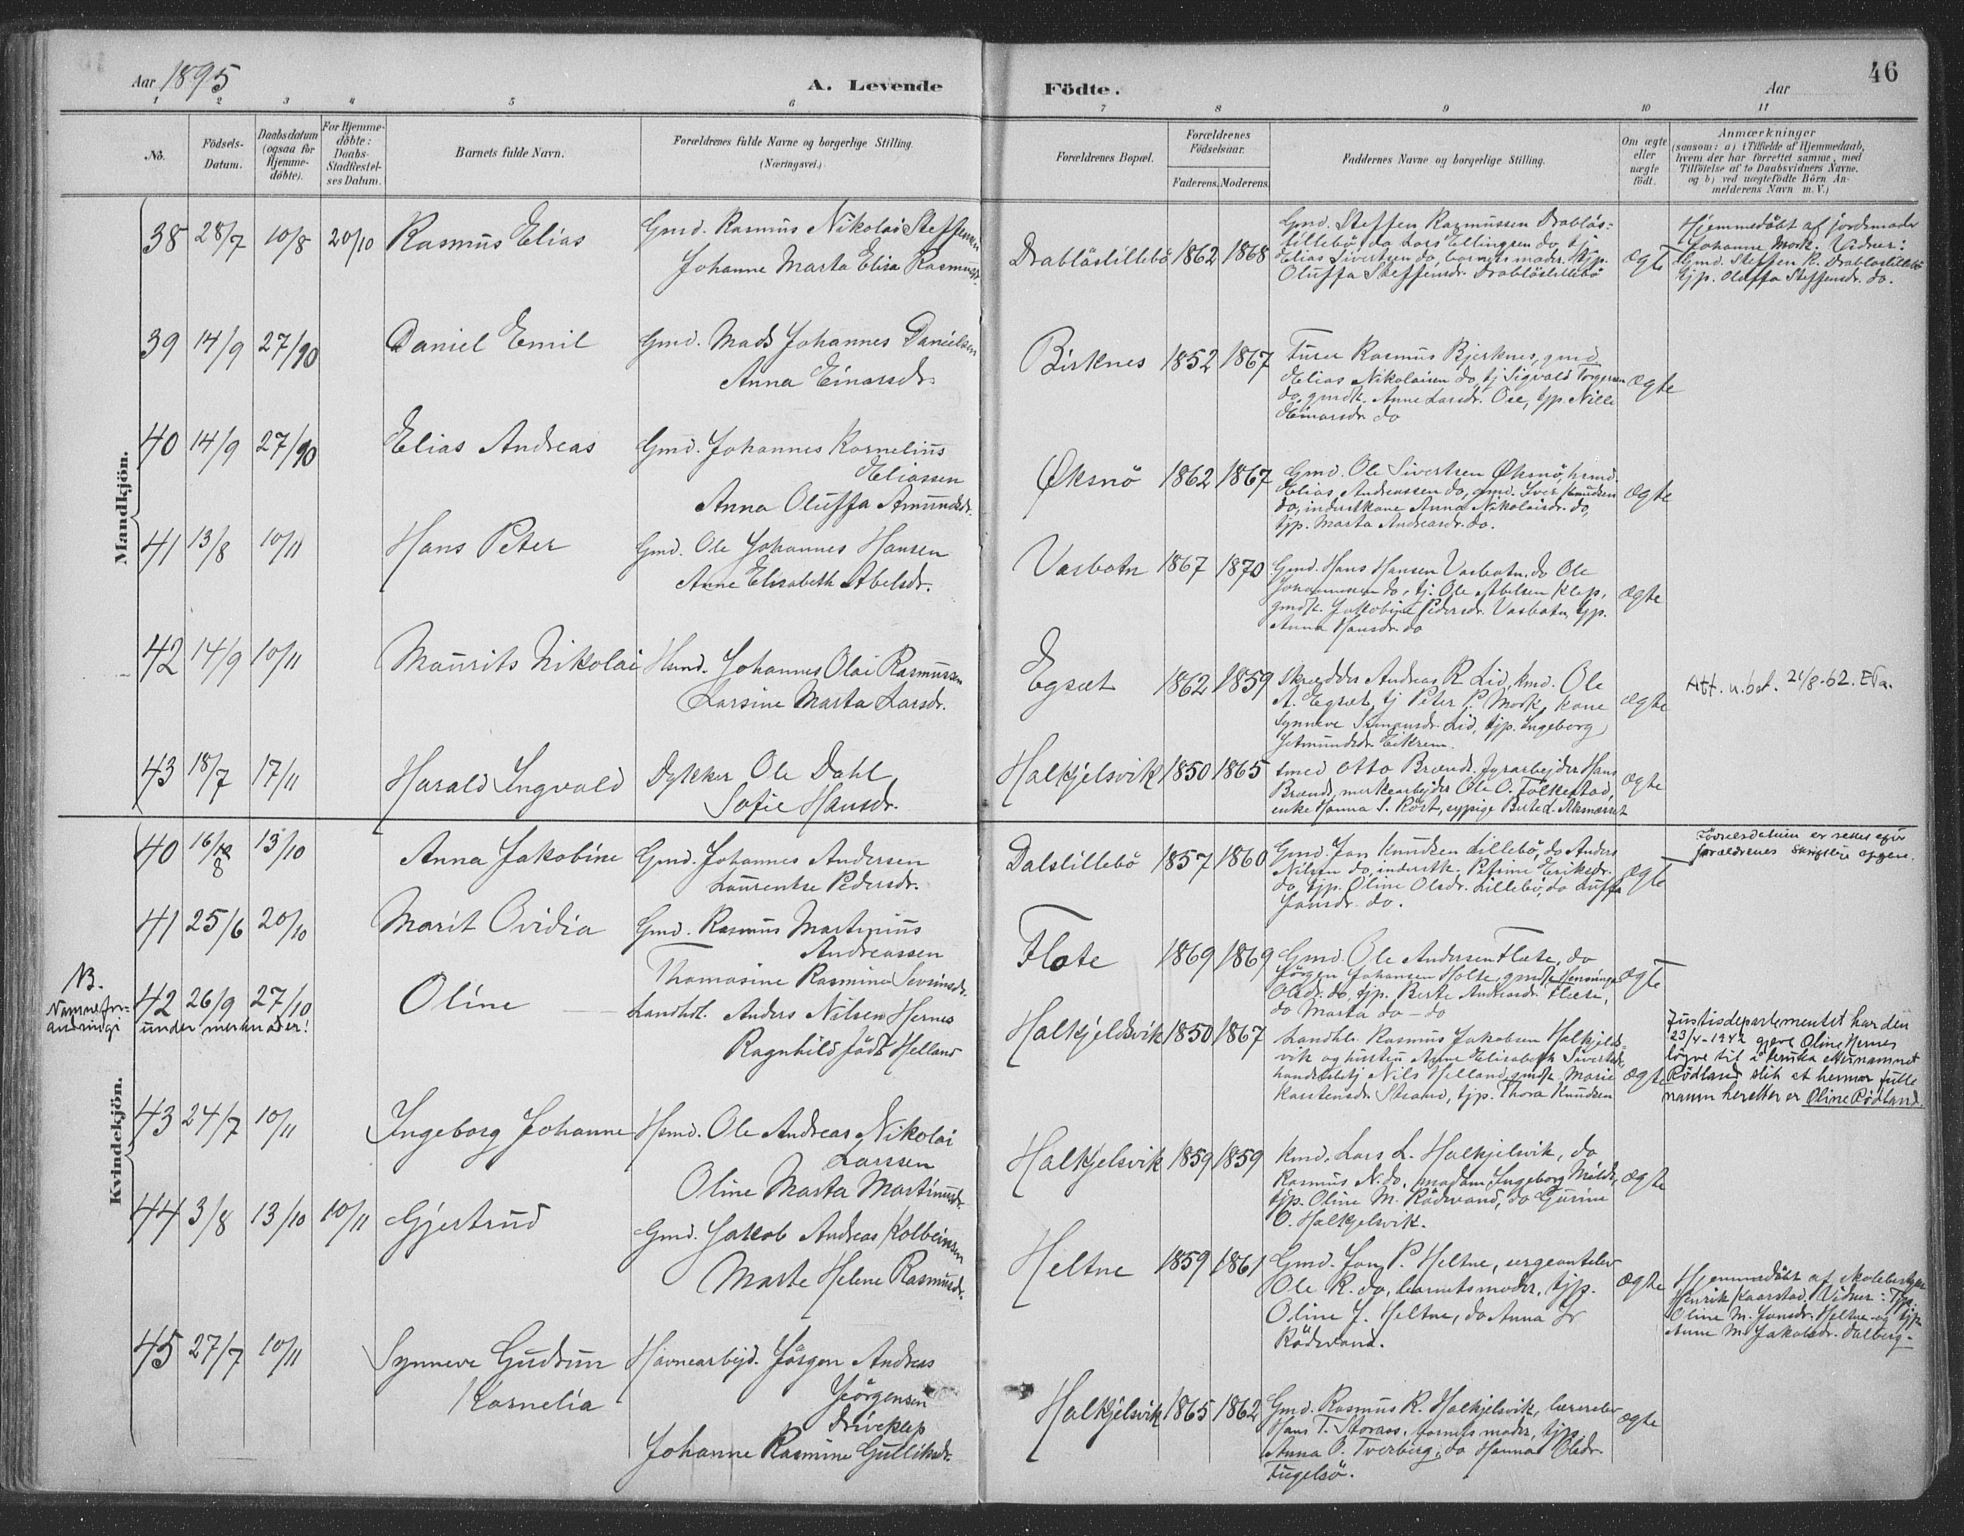 Aar 1895
A. Levende Födte.
Aar
46
1 2 3 4 5 6 7 8 9 10 11
No.
Födsels-Datum.
Daabsdatum (ogsaa for Hjemme-döbte).
For Hjemme-döbte: Daabs-Stadfæstel-ses Datum.
Barnets fulde Navn.
Forældrenes fulde Navne og borgerlige Stilling. (Næringsvei.)
Forældrenes Bopæl.
Forældrenes Födselsaar.
Faderens. Moderens.
Faddernes Navne og borgerlige Stilling.
Om ægte eller uægte födt.
Anmærkninger
(saasom: a) i Tilfælde af Hjemmedaab, hvem der har forrettet samme, med Tilföielse af to Daabsvidners Navne. og b) ved uægtefödte Börn An-melderens Navn m. V.)
Mandkjön.
38 28/7 10/8 20/10 Rasmus Elias
Gmd. Rasmus Nikolai Steffensen
Johanne Marta Elisa Rasmusd.
Drabløslillebø 1862 1868
Gmd. Steffen Rasmussen Drabløs-
lillebø, do Lars Ellingsen do, tj.
Elias Sivertsen do, barnets moder, tjp.
Oluffa Steffensdr. Drabløslillebø
ægte
Hjemmedöbt af jordemoder
Johanne Mork. Vidner:
Gmd. Steffen R. Drabløslillebø
tjp. Oluffa Steffensdr. do.
39 14/9 27/10 Daniel Emil
Gmd. Mads Johannes Danielsen
Anna Einarsdr.
Birknes 1852 1867
Furer Rasmus Bjerknes, gmd
Elias Nikolaisen do, tj Sigvald Torgersen
do, gmdk. Anne Larsdr. Ose, tjp. Nille
Einarsdr. do
ægte
40 14/9 27/10 Elias Andreas
Gmd. Johannes Kornelius
Eliassen
Anna Oluffa Amundsdr.
Øksnø 1862 1867
Gmd. Ole Sivertsen Øksnø, hsmd
Elias Andreassen do, gmd. Iver Knudsen
do, inderstkone Anna Nikolaisdr. do,
tjp. Marta Andreasdr. do.
ægte
41 13/8 10/11 Hans Peter
Gmd. Ole Johannes Hansen
Anne Elisabeth Abelsdr.
Vasbotn 1867 1870
Gmd. Hans Hansen Vasbotn, do Ole
Johannessen do, tj. Ole Abelsen Klep,
gmdk. Jakobine Pedersdr. Vasbotn, tjp.
Anna Hansdr. do
ægte
42 14/9 10/11 Maurits Nikolai
Hsmd. Johannes Olai Rasmussen
Larsine Marta Larsdr.
Egset 1862 1859
Skrædder Andreas R. Lid, hmd. Ole
A. Egset, tj Peter P. Mork, kone
Synneve Simonsdr. Lid, tjp. Ingeborg
Jetmundsdr. Eikrem.
ægte
Att. u.bet. 21/8-62.
43 18/7 17/11 Harald Ingvald
Dykker Ole Dahl
Sofie Hansdr.
Halkjelsvik 1850 1865
Smed Otto Brænd, fyrarbejder Hans
Brænd, merkearbejder Ole O. Folkestad,
enke Hanna S. Röst, sypige Berte L. Aamasset
ægte
Kvindekjön.
40 16/8 13/10 Anna Jakobine
Gmd. Johannes Andersen
Laurentse Pedersdr.
Dalslillebø 1857 1860
Gmd. Jon Knudsen Lillebø, do Anders
Nilsen do, inderstk. Petrine Eriksdr.
do, tjp. Oline Olsdr. Lillebø, do Luffa
Jonsdr. do.
ægte
Fødselsdatum er rettet efter
forældrenes skriftlige opgave.
41 25/6 20/10 Marit Ovidia
Gmd. Rasmus Martinius
Andreassen
Thomasine Rasmine Sevrinsdr.
Flote 1869 1869
Gmd. Ole Andersen Flote, do
Jörgen Johansen Holte, gmdk Henninga
Olsdr. do, tjp. Berte Andreasdr. Flote,
do Marta do - do
ægte
NB.
Namnefor-
andringi under merknader!
42 26/9 27/10 Oline
Landhdl. Anders Nilsen Hernes
Ragnhild født Helland
Halkjeldsvik 1850 1867
Landhdl. Rasmus Jakobsen Halkjelds-
vik og hustru Anne Elisabeth Sivertsdr,
handelsbetj Nils Helland, gmdk Marie
Karstensdr. Strand, tjp. Thora Knudsen
ægte
Justisdepartementet har den
23/4-1942 gjeve Oline Hernes
løyve til å bruka etternamnet
Rødland slik at hennar fulle
namn heretter er Oline Rødland.
43 24/7 10/11 Ingeborg Johanne
Hsmd. Ole Andreas Nikolai
Larssen
Oline Marta Martinusdr.
Halkjelsvik 1859 1859
Kmd. Lars L. Halkjelsvik, do
Rasmus N. do, madam Ingeborg Molde,
tjp. Oline M. Rødvand, do Gurine
O. Halkjelsvik.
ægte
44 3/8 13/10 10/11 Gjertrud
Gmd. Jakob Andreas Kolbeinsen
Marte Helene Rasmusdr.
Heltne 1859 1861
Gmd. Jon P. Heltne, sergeantelev
Ole R. do, barnets moder, tjp.
Oline J. Heltne, do Anna
Rødvand.
ægte
Hjemmedöbt af skolebestyrer
Henrik Kaarstad. Vidner: Tjp.
Oline M. Jonsdr. Heltne og tjp
Anne M. Jakobsdr. Dalberg -
45 27/7 10/11 Synneve Gudrun
Kornelia
Havnearbejd. Jörgen Andreas
Jörgensen
Driveklep
Johanne Rasmine Gulliksdr.
Halkjelsvik 1865 1862
Gmd. Rasmus R. Halkjelsvik, lærerelev
Hans T. Storaas, barnets moder, tjp.
Anna O. Tverberg, do Hanna Olsdr.
Fugelsö.
ægte